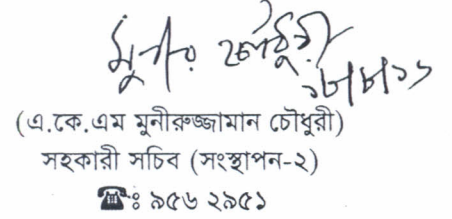 মুনীর চৌধুরী
১৮/৮/১১
(এ.কে.এম মুনীরুজ্জামান চৌধুরী)
সহকারী সচিব (সংস্থাপন-২)
☎ঃ ৯৫৬ ২৯৫১